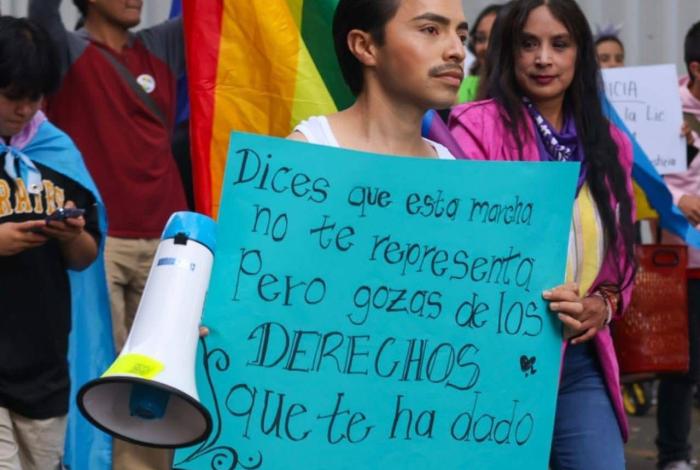 Dices que esta marcha
no te representa
Pero gozas de los
DERECHOS
que te ha dado
ICIA
la Lic
justicia